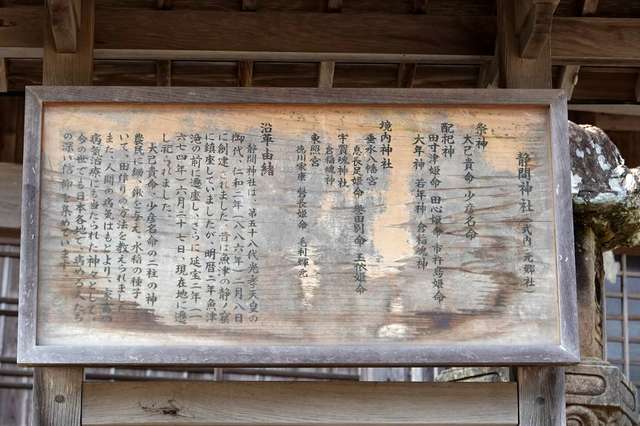 静間神社（式内 元郷社）
祭神
大己貴命 少彦名命
配祀神
田寸津姫命 田心姫命 市杵島姫命
大年神 若年神 倉稲魂神
境内神社
垂水八幡宮
息長足姫命 誉田別命 玉依姫命
宇賀魂神社
倉稲魂神
東照宮
徳川家康 毛利輝元
沿革由緒
静間神社は、第五十八代光孝天皇の
御代、仁和二年（八八六年）二月八日
に創建されました。昔は魚津の静ノ窟
に鎮座していましたが、明暦二年魚津
浴の前に遷座し、さらに延宝二年（一
六七四年）六月二十一日、現在地に遷
し祀られました。
大己貴命、少彦名命の二柱の神は
農民に鋤、鍬を与え、水稲の種子を
いて、田作りの方法を教えられました
また、人間の病気はもとより、家畜の
病気治療にも当たられた神々として、
今の世でも日本各地で、病める人たち
の深い信仰を集めています。